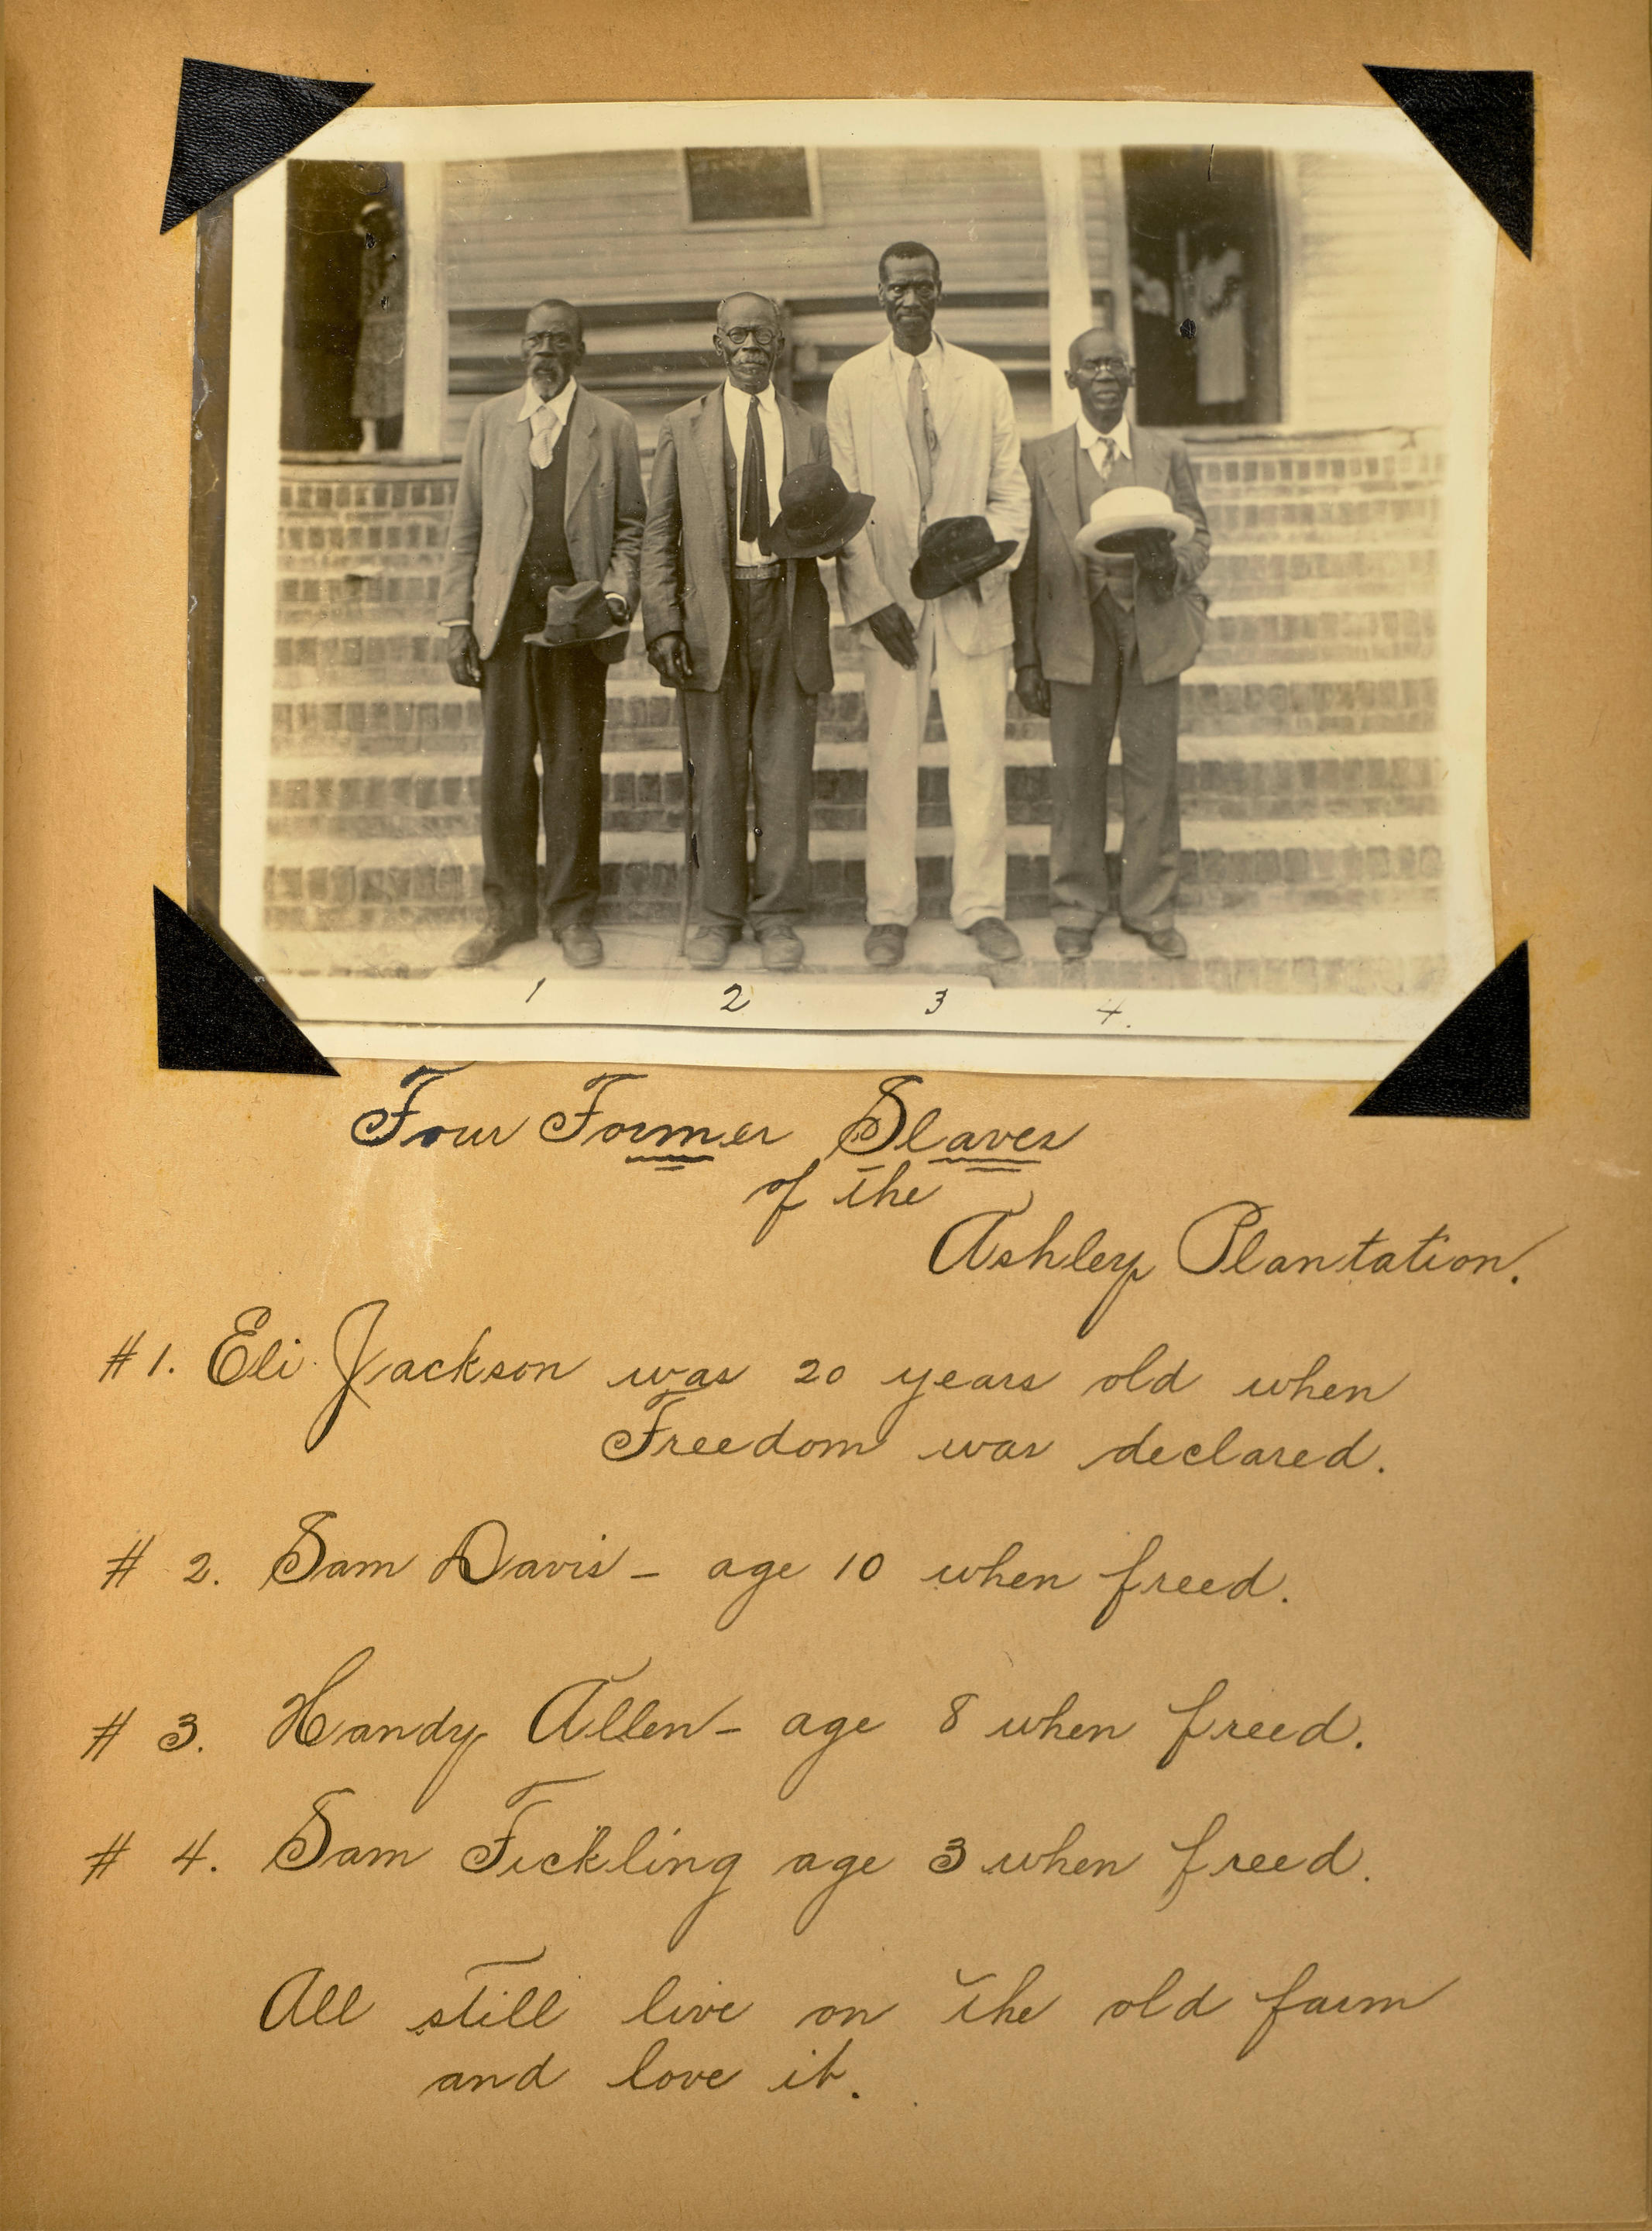 1 2 3 4.
Four Former Slaves
of the
Ashley Plantation.
#1. Eli Jackson was 20 years old when
Freedom was declared.
# 2. Sam Davis - age 10 when freed.
# 3. Handy Allen - age 8 when freed.
# 4. Sam Fickling age 3 when freed.
All still live on the old farm
and love it.